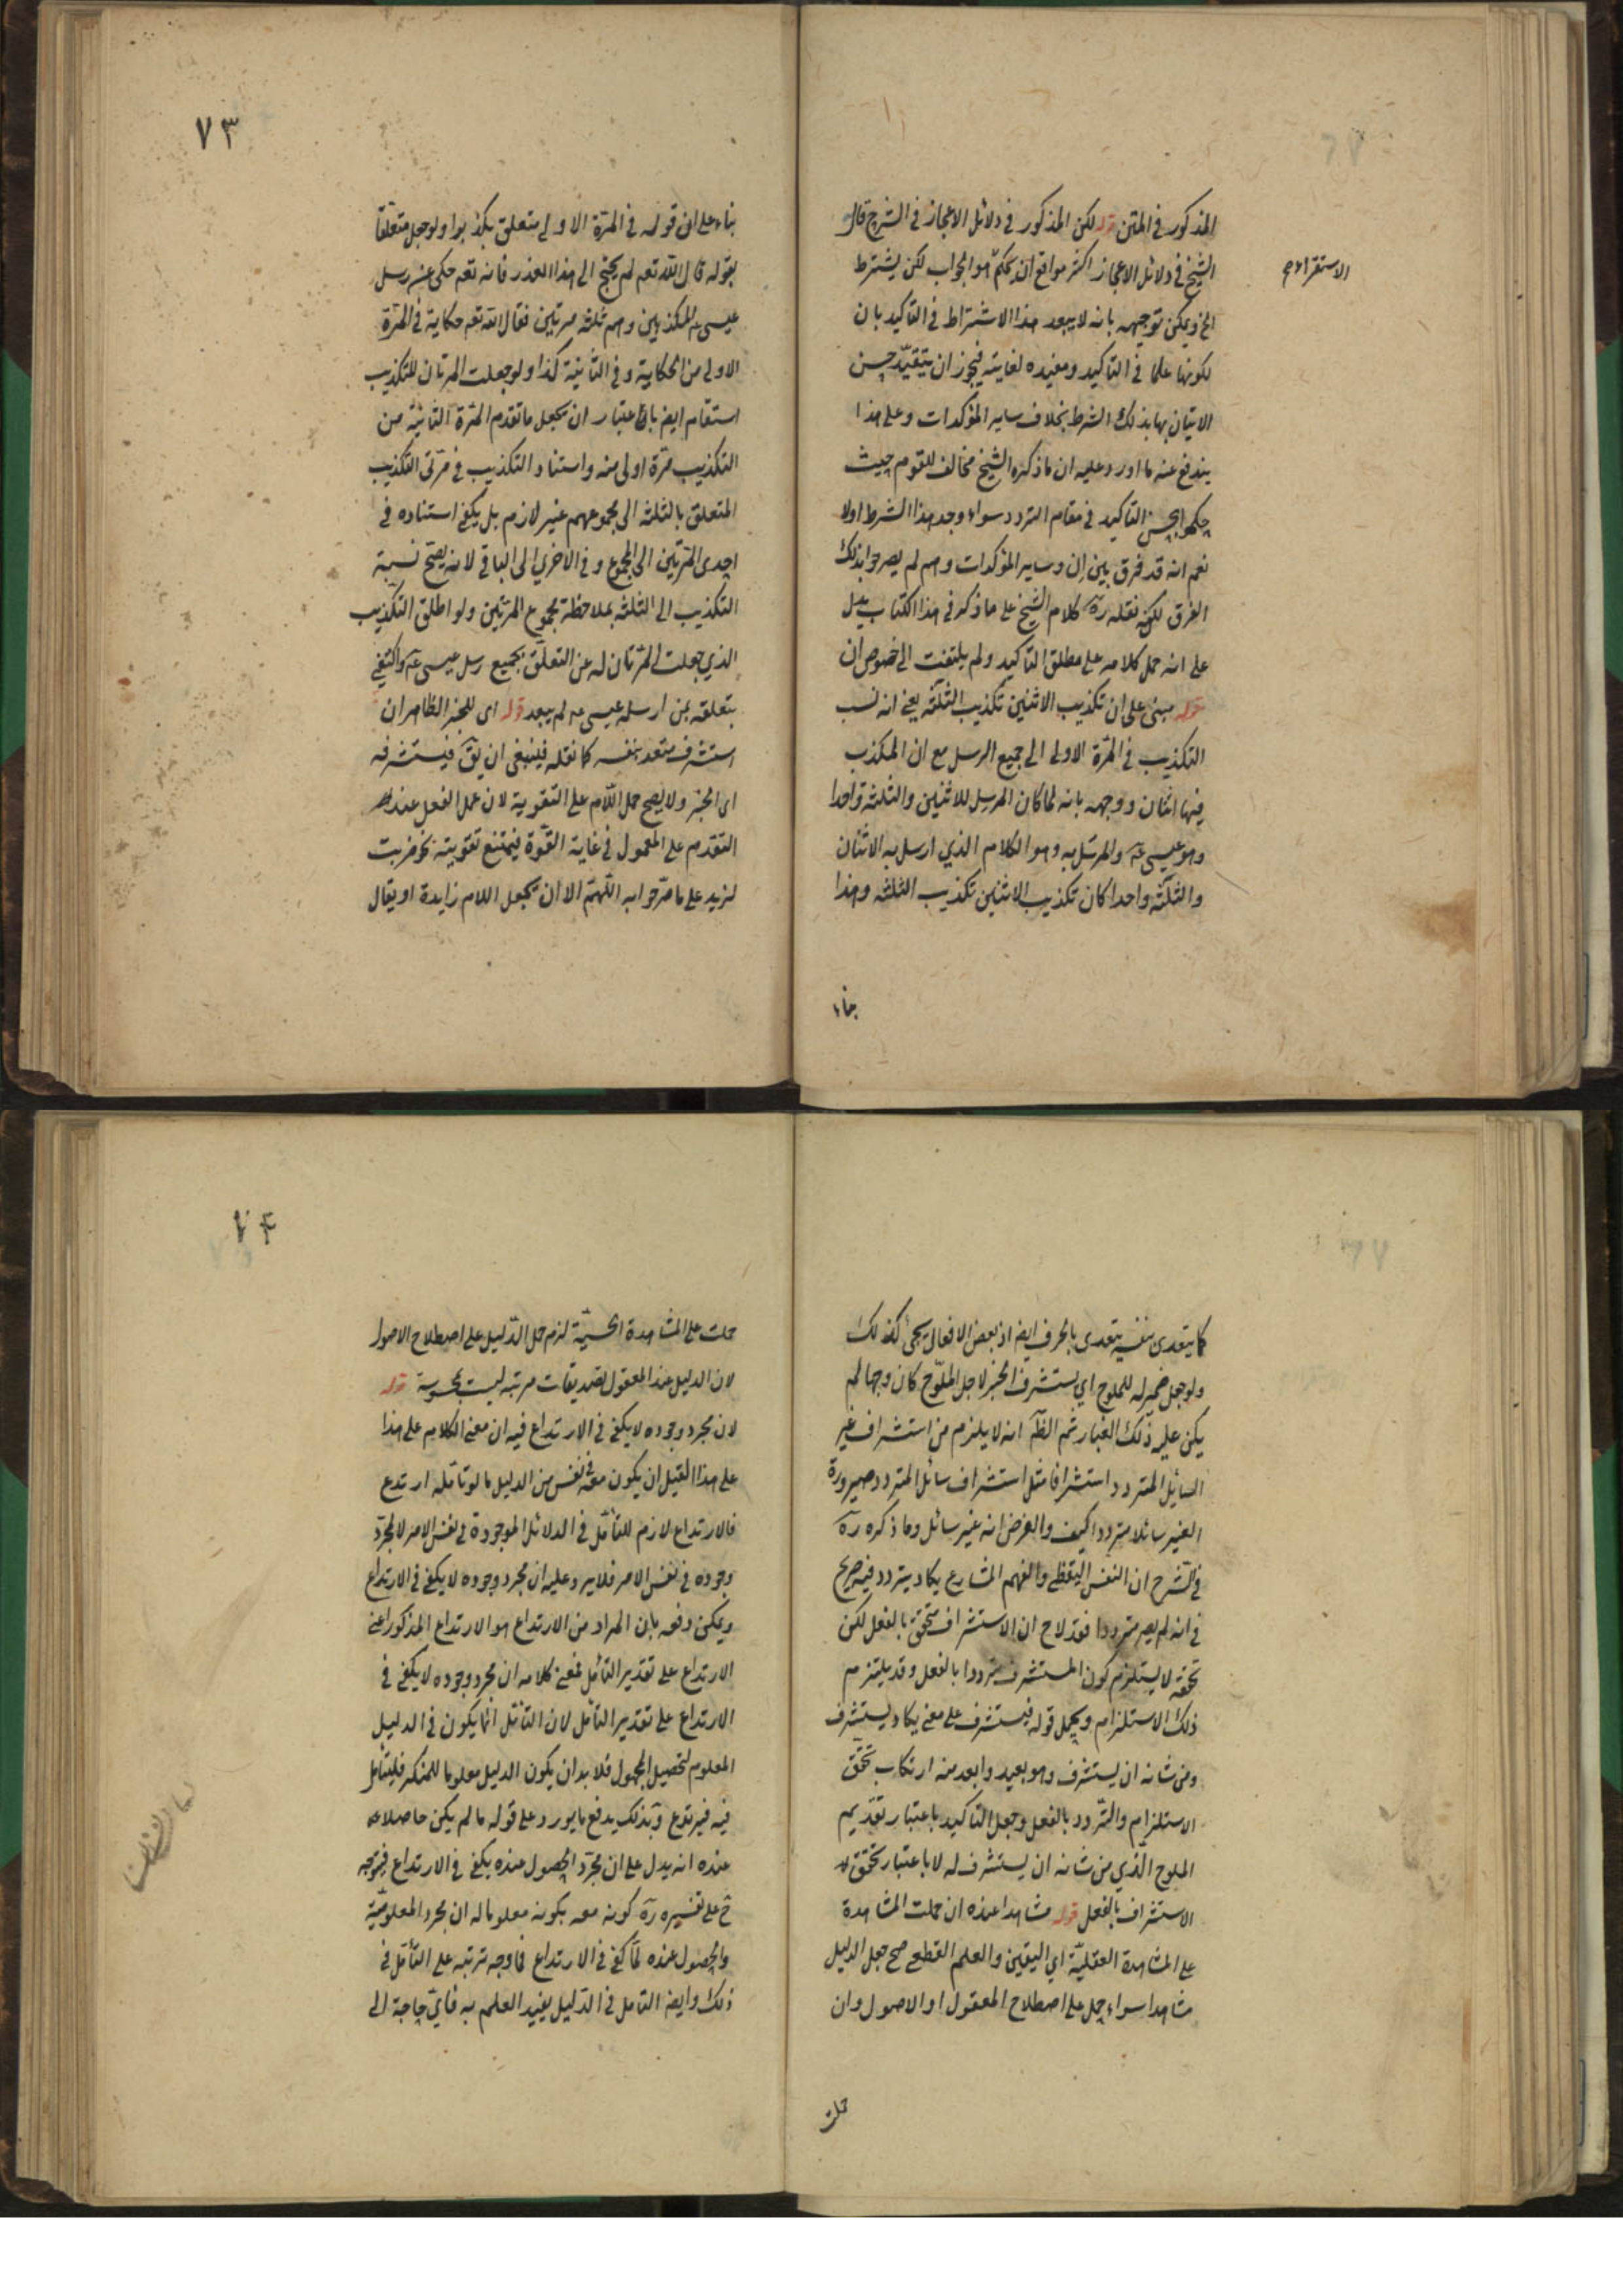 المذكور في المتن قوله لكن المذكور في دلائل الاعجاز في الشرح قال
الشيخ في دلائل الاعجاز اكثر مواقع ان بحكم هو الجواب لكن يشترط
الاستقراء
الخ ويمكن توجيهه بانه لا يبعد هذا الاشتراط في التاكيد بان
لكونها علما في التاكيد ومفيده لغايته فيجوز ان يتقيد حسن
الاتيان بها بذلك الشرط بخلاف ساير المؤكدات وعلى هذا
يندفع عنه ما اورد عليه ان ما ذكره الشيخ مخالف للقوم حيث
حكموا بحسن التاكيد في مقام التردد سواء وجد هذا الشرط اولا
نعم انه قد فرق بين ان وساير المؤكدات وهم لم يصرحوا بذلك
الفرق لكن نقله ره كلام الشيخ على ما ذكر في هذا الكتاب يدل
على انه حمل كلامه على مطلق التاكيد ولم يلتفت الى خصوص ان
قوله مبنى على ان تكذيب الاثنين تكذيب الثلثة يعني انه نسب
التكذيب في المرة الاولى الى جميع الرسل مع ان المكذب
فيها اثنان ووجهه بانه لما كان المرسل للاثنين والثلثة واحدا
وهو عيسى عه والمرسل به وهو الكلام الذي ارسل به الاثنان
والثلثة واحدا كان تكذيب الاثنين تكذيب الثلثة وهذا
بناء
٧٣
بناء على ان قوله في المرة الاولى متعلق بكذبوا ولو جعل متعلقا
بقوله قال الله تعه لم يحتج الى هذا العذر فانه تعه حكى عنه رسل
عيسى عه المكذبين وهم ثلثة مرتين فقال الله تعه حكاية في المرة
الاولى من الحكاية وفي الثانية كذا ولو جعلت المرتان للتكذيب
استقام ايض باعتبار ان يجعل ما تقدم المرة الثانية من
التكذيب مرة اولى منه واسناد التكذيب في مرتى التكذيب
المتعلق بالثلثة الى مجموعهم غير لازم بل يكفي استناده في
احدى المرتين الى المجموع وفي الاخرى الى الباقي لانه يصح نسبة
التكذيب الى الثلثة بملاحظة مجموع المرتين ولو اطلق التكذيب
الذي جعلت المرتان له عن التعلق بجميع رسل عيسى عه واكتفي
بتعلقه بمن ارسله عيسى عه لم يبعد قوله اى للخبر الظاهر ان
استشرف متعد بنفسه كما نقله فينبغى ان يق فيستشرفه
اى الخبر ولا يصح حمل اللام على التقوية لان عمل الفعل عند
التقدم على المعمول في غاية القوة فيمتنع تقويته نحو ضربت
لزيد على ما صرحوا به اللهم الا ان تجعل اللام زايدة او يقال
كما يتعدى بنفسه يتعدى بالحرف ايض اذ بعض الافعال يجئ كذلك
ولو جعل ضمير له للملوح اي يستشرف الخبر لاجل الملوح كان وجها لم
يكن عليه ذلك الغبار ثم الظ انه لا يلزم من استشراف غير
السايل المتردد استشرافا مثل استشراف سائل المتردد صيرورة
الغير سائلا مترددا كيف والغرض انه غير سائل وما ذكره ره
في الشرح ان النفس اليقظى والفهم المتسارع يكاد يتردد فيه صريح
في انه لم يصر مترددا فقد لاح ان الاستشراف متحقق بالفعل لكن
تحققه لا يستلزم كون المستشرف مترددا بالفعل وقد يلتزم
ذلك الاستلزام ويحمل قوله فيستشرف على معنى يكاد يستشرف
ومن شانه ان يستشرف وهو بعيد وابعد منه ارتكاب تحقق
الاستلزام والتردد بالفعل وجعل التاكيد باعتبار تقديم
الملوح الذي من شانه ان يستشرف له لا باعتبار تحقق
الاستشراف بالفعل قوله مشاهدا عنده ان حملت المشاهدة
على المشاهدة العقلية اي اليقين والعلم القطعي صح جعل الدليل
مشاهدا سواء حمل على اصطلاح المعقول او الاصول وان
حملت
٧۴
حملت على المشاهدة الحسية لزم حمل الدليل على اصطلاح الاصول
لان الدليل عند المعقول تصديقات مرتبه ليست بمحسوسة قوله
لان مجرد وجوده لا يكفي في الارتداع فيه ان معنى الكلام على هذا
على هذا القيل ان يكون معه في نفس من الدليل ما لو تامله ارتدع
فالارتداع لازم للتأمل في الدلائل الموجودة في نفس الامر لا لمجرد
وجوده في نفس الامر فلا يرد عليه ان مجرد وجوده لا يكفي في الارتداع
ويمكن دفعه بان المراد من الارتداع هو الارتداع المذكور اعنى
الارتداع على تقدير التأمل فمعنى كلامه ان مجرد وجوده لا يكفي في
الارتداع على تقدير التأمل لان التأمل انما يكون في الدليل
المعلوم لتحصيل المجهول فلا بد ان يكون الدليل معلوما للمنكر فليتأمل
فيه فيرتدع وبذلك يدفع ما يورد على قوله ما لم يكن حاصلا
عنده انه يدل على ان مجرد الحصول عنده يكفي في الارتداع فيتوجه
ح على تفسيره ره كونه معه بكونه معلوما له ان مجرد المعلومية
والحصول عنده لما كفى في الارتداع فما وجه ترتبه على التأمل في
ذلك وايض التامل في الدليل يفيد العلم به فاي حاجة الى